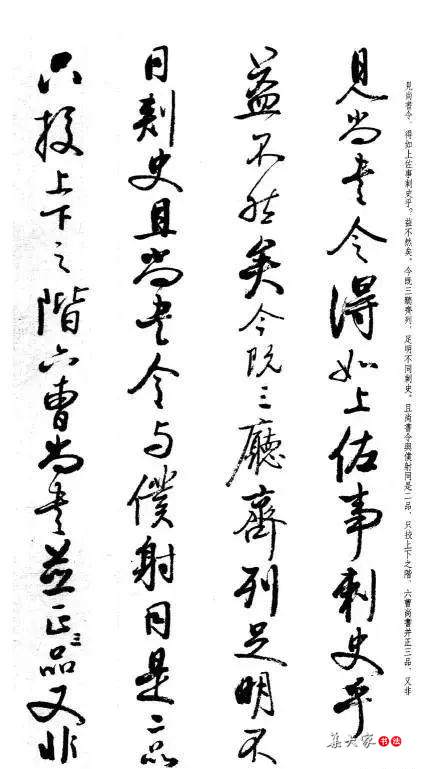 見尚書令得如上佐事刺史乎
益不然矣今既三廳齊列足明不
同刺史且尚書令与僕射同是二品
只校上下之階六曹尚書並正三品又非
見尚書令，得如上佐事刺史乎？益不然矣。今既三廳齊列，足明不同刺史。且尚書令與僕射同是二品，只校上下之階，六曹尚書并正三品，又非
集大家 书法